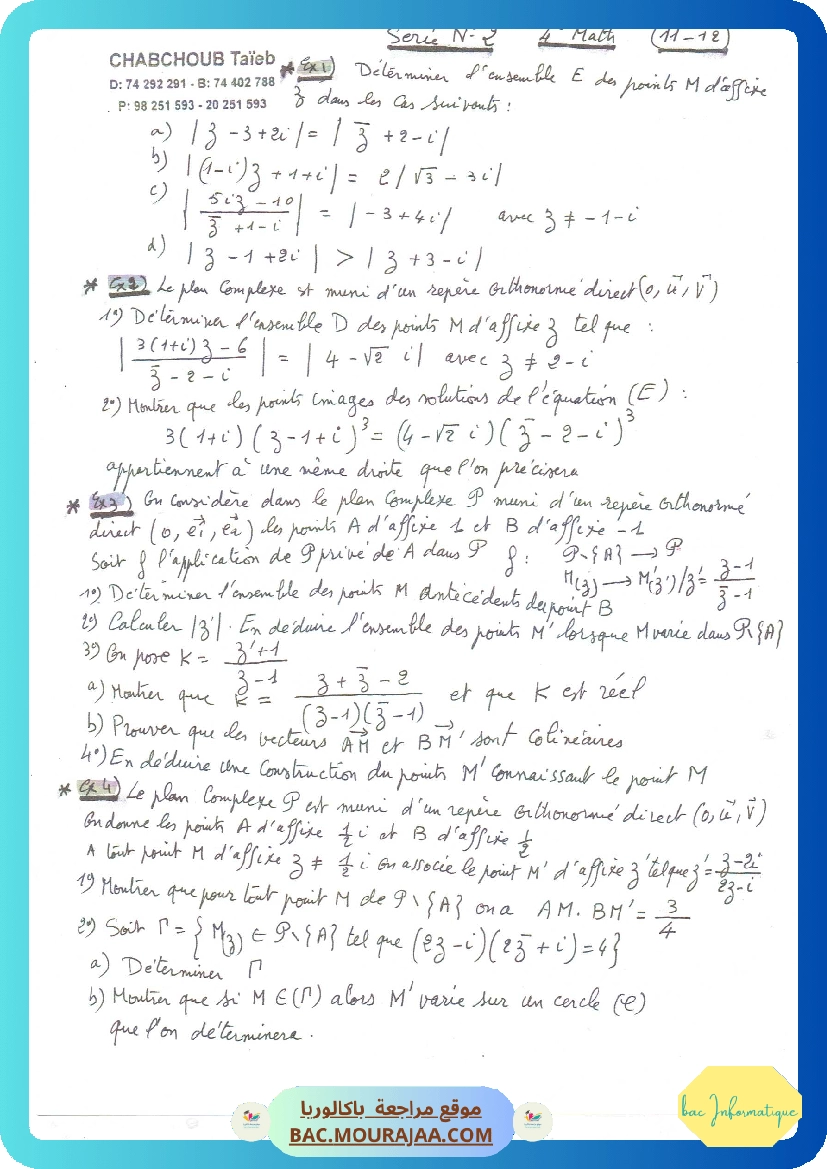 Serie N-2 4° Math (11-12)
CHABCHOUB Taïeb
D: 74 292 291 - B: 74 402 788
P: 98 251 593 - 20 251 593
* Ex1) Déterminer l'ensemble E des points M d'affixe
z dans les Cas Suivants :
a) |z - 3 + 2i| = |z̄ + 2 - i|
b) |(1-i)z + 1 + i| = 2|√3 - 3i|
c) |(5iz - 10)/(z̄ + 1 - i)| = |-3 + 4i| avec z ≠ -1 - i
d) |z - 1 + 2i| > |z + 3 - i|
* Ex2) Le plan Complexe st muni d'un repère Orthonormé direct (o, u⃗, v⃗)
1°) Déterminer l'ensemble D des points M d'affixe z tel que :
|(3(1+i)z - 6)/(z̄ - 2 - i)| = |4 - √2 i| avec z ≠ 2 - i
2°) Montrer que les points images des solutions de l'équation (E) :
3(1+i)(z - 1 + i)³ = (4 - √2 i)(z̄ - 2 - i)³
appartiennent à une même droite que l'on précisera
* Ex3) On considère dans le plan Complexe P muni d'un repère Orthonormé
direct (o, e⃗1, e⃗2) les points A d'affixe 1 et B d'affixe -1
Soit f l'application de P privé de A dans P f : P\{A} → P
M(z) → M'(z')/z' = (z-1)/(z̄-1)
1°) Déterminer l'ensemble des points M Antécédents du point B
2°) Calculer |z'|. En déduire l'ensemble des points M' lorsque M varie dans P\{A}
3°) On pose K = (z'+1)/(z-1)
a) Montrer que K = (z + z̄ - 2)/((z-1)(z̄-1)) et que K est réel
b) Prouver que les vecteurs AM⃗ et BM'⃗ sont Colinéaires
4°) En déduire une Construction du points M' Connaissant le point M
* Ex4) Le plan Complexe P est muni d'un repère Orthonormé direct (o, u⃗, v⃗)
On donne les points A d'affixe 1/2 i et B d'affixe 1/2
A tout point M d'affixe z ≠ 1/2 i on associe le point M' d'affixe z' tel que z' = (z-2i)/(2z-i)
1°) Montrer que pour tout point M de P\{A} on a AM.BM' = 3/4
2°) Soit Γ = {M(z) ∈ P\{A} tel que (2z-i)(2z̄+i) = 4}
a) Déterminer Γ
b) Montrer que si M ∈ (Γ) alors M' varie sur un cercle (C)
que l'on déterminera.
bac Informatique
موقع مراجعة باكالوريا
BAC.MOURAJAA.COM